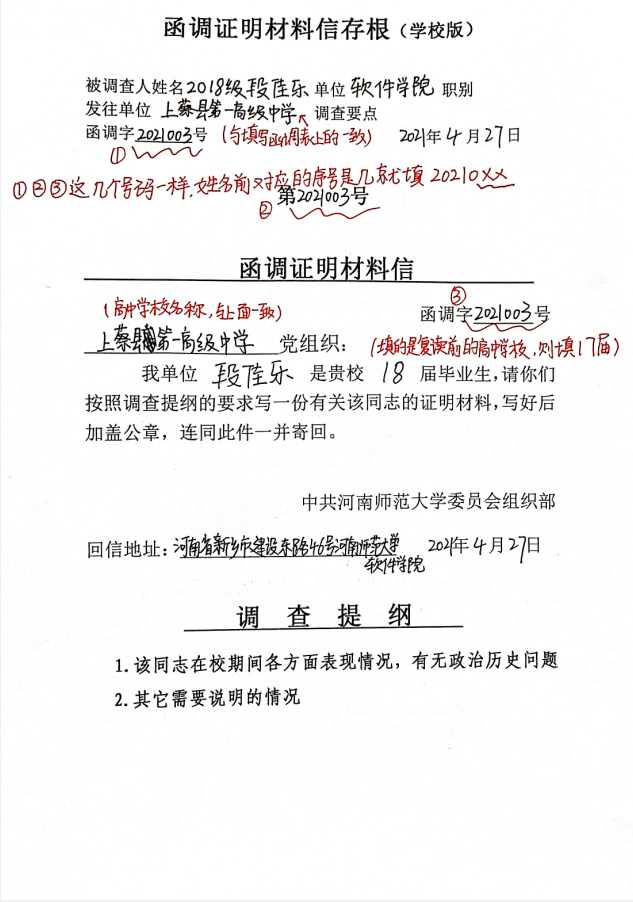 函调证明材料信存根（学校版）
被调查人姓名2018级段佳乐单位软件学院 职别
发往单位 上蔡县第一高级中学 调查要点
函调字2021003号 (与填写函调表上的一致) 2021年4月27日
①
①②③这几个号码一样,姓名前对应的序号是几就填 20210××
第2021003号
②
函调证明材料信
③
(高中学校名称,与上面一致) 函调字2021003号
上蔡县第一高级中学 党组织： (填的是复读前的高中学校,则填17届)
我单位 段佳乐 是贵校 18 届毕业生，请你们
按照调查提纲的要求写一份有关该同志的证明材料，写好后
加盖公章，连同此件一并寄回。
中共河南师范大学委员会组织部
回信地址：河南省新乡市建设东路46号河南师范大学 2021年4月27日
软件学院
调 查 提 纲
1.该同志在校期间各方面表现情况，有无政治历史问题
2.其它需要说明的情况